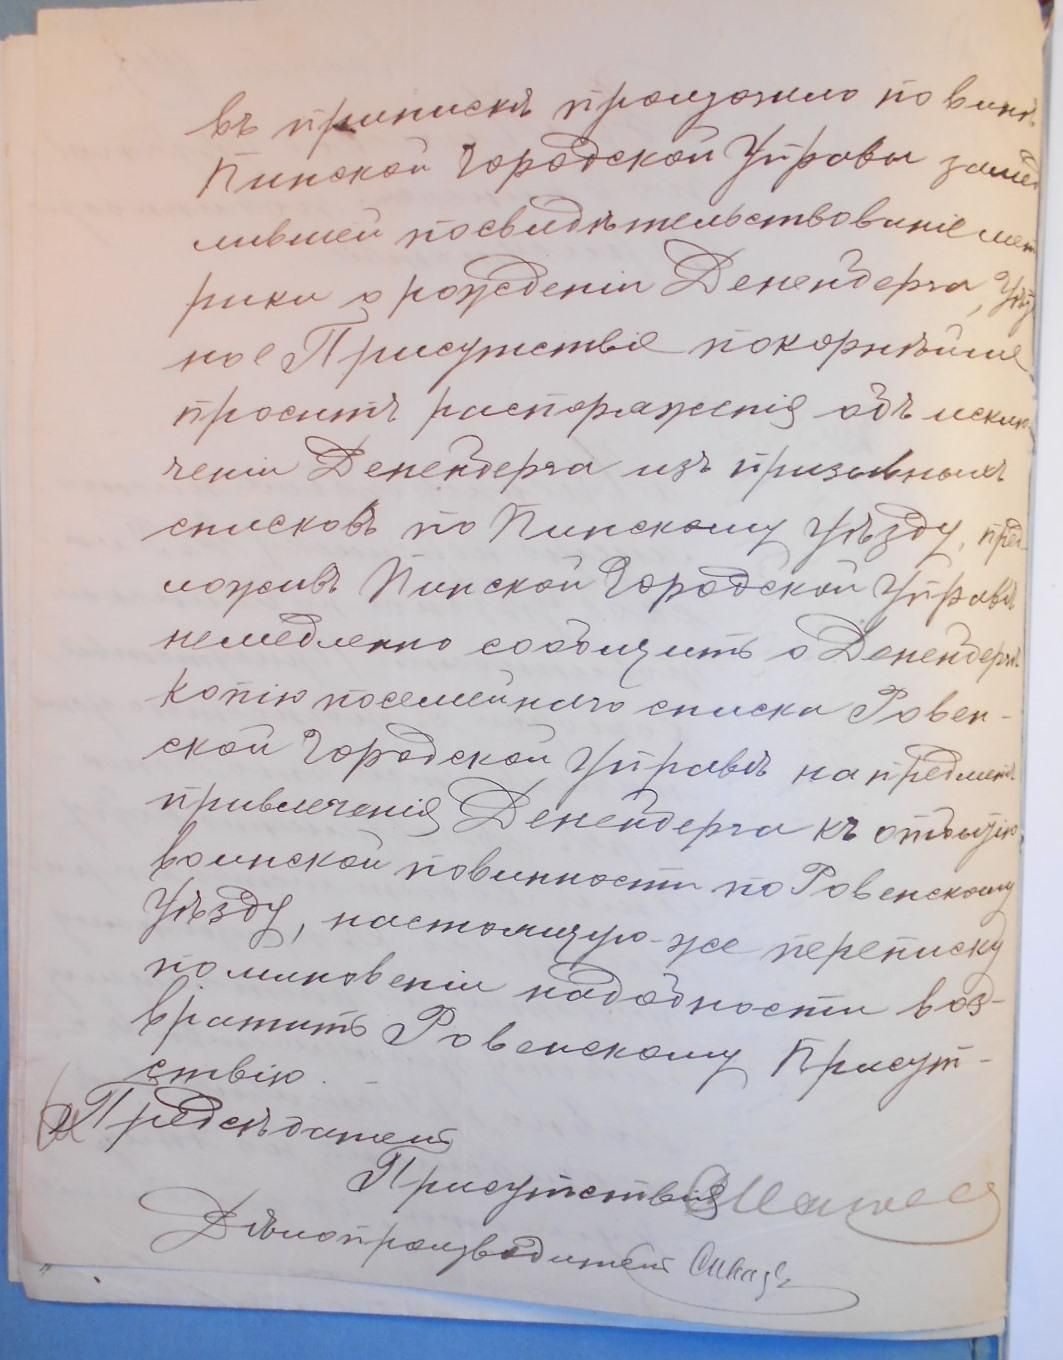 въ припискѣ произошло по винѣ
Пинской Городской Управы замед
лившей посвидѣтельствованіе мет
рики о рожденіи Денендерга, Уѣзд
ное Присутствіе покорнѣйше
проситъ распоряженія объ исклю
ченіи Денендерга изъ призывныхъ
списковъ по Пинскому уѣзду, пред
ложивъ Пинской Городской Управѣ
немедленно сообщить о Денендергѣ
копію посемейнаго списка Ровен-
ской Городской Управѣ на предметъ
привлеченія Денендерга къ отбытію
воинской повинности по Ровенскому
уѣзду, настоящую-же переписку
по минованіи надобности воз-
вратить Ровенскому Присут-
ствію.
Предсѣдатель
Присутствія
Дѣлопроизводитель